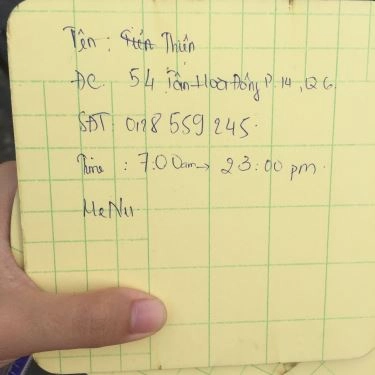 Tên : Thiên
ĐC. 54 Tân Hoà Đông P. 14, Q6.
SĐT: 0128 559 245.
Time : 7.00am → 23:00 pm.
MeNu